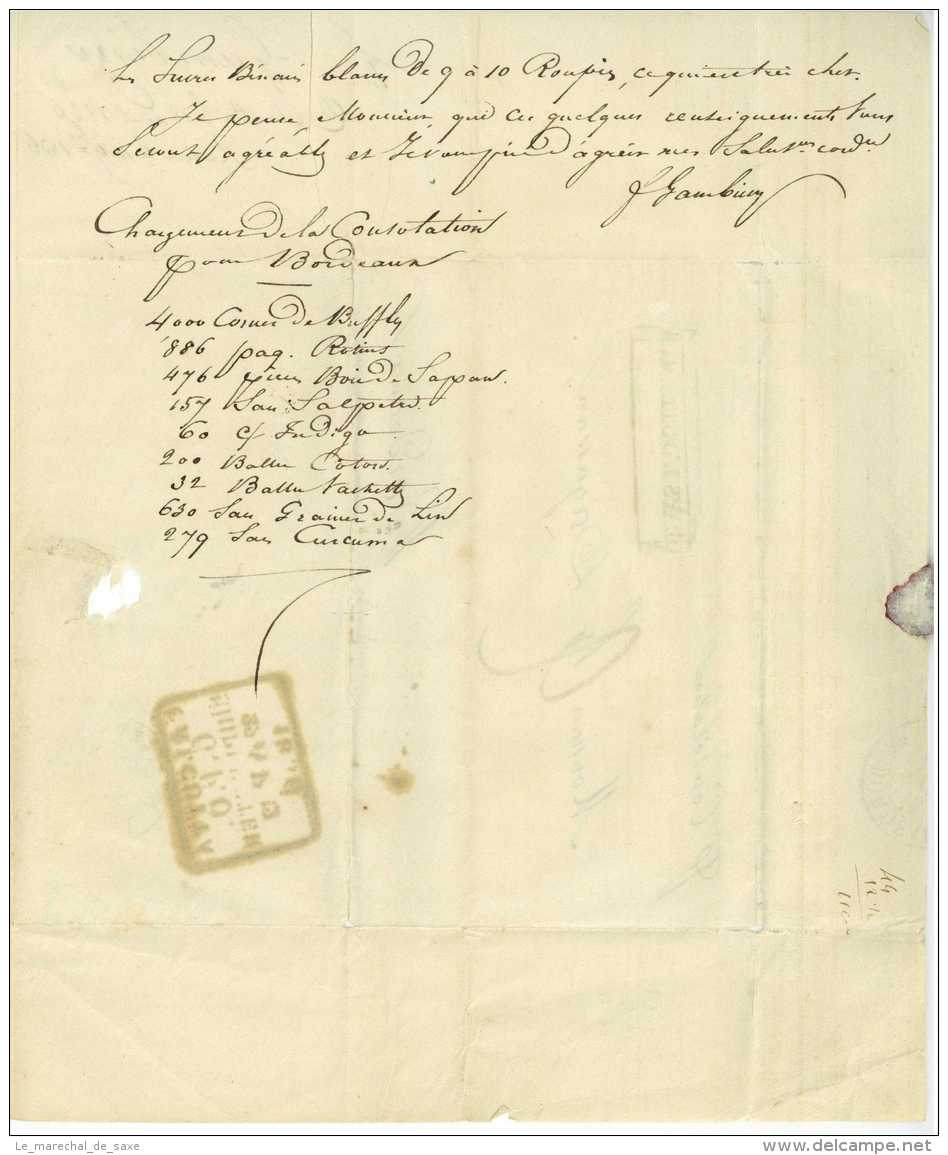 Les Sucres Bénarès blancs de 9 à 10 Roupies, ce qui est très cher.
Je pense, Monsieur, que ces quelques renseignements Vous
Seront agréables et Je vous prie d'agréer mes Salut.ns cord.les
Chargement de la Consolation
pour Bordeaux
4000 Cornes de Buffle
886 paq. Rotins
476 pièces Bois de Sappan.
157 Sacs Salpetre.
60 c/ Indigo
200 Balles Coton.
32 Balles
630 Sacs Graines de Lin
279 Sacs Curcuma
44
Le_marechal_de_saxe
www.delcampe.net